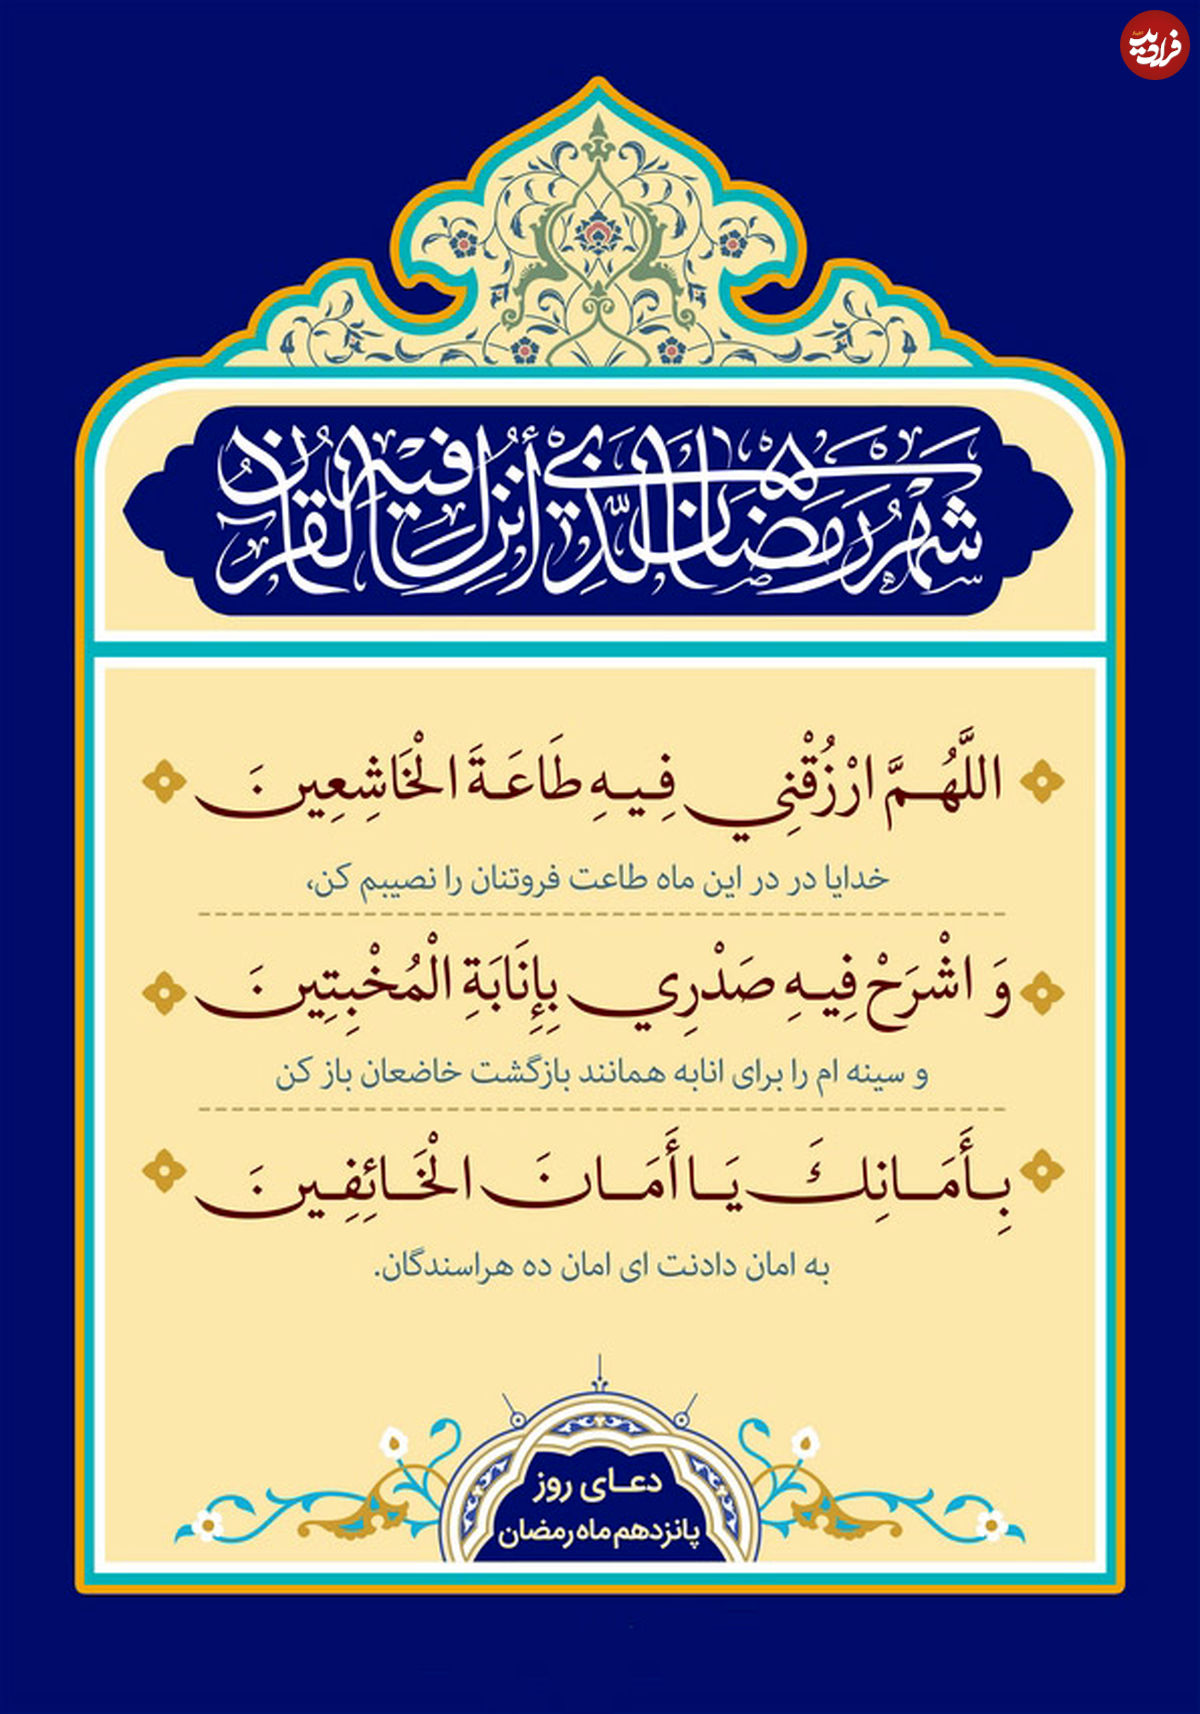 فرادید
شَهْرُ رَمَضَانَ الَّذِي أُنْزِلَ فِيهِ الْقُرْآنُ
اللَّهُمَّ ارْزُقْنِي فِيهِ طَاعَةَ الْخَاشِعِينَ
خدایا در در این ماه طاعت فروتنان را نصیبم کن،
وَ اشْرَحْ فِيهِ صَدْرِي بِإِنَابَةِ الْمُخْبِتِينَ
و سینه ام را برای انابه همانند بازگشت خاضعان باز کن
بِأَمَانِكَ يَا أَمَانَ الْخَائِفِينَ
به امان دادنت ای امان ده هراسندگان.
دعای روز
پانزدهم ماه رمضان